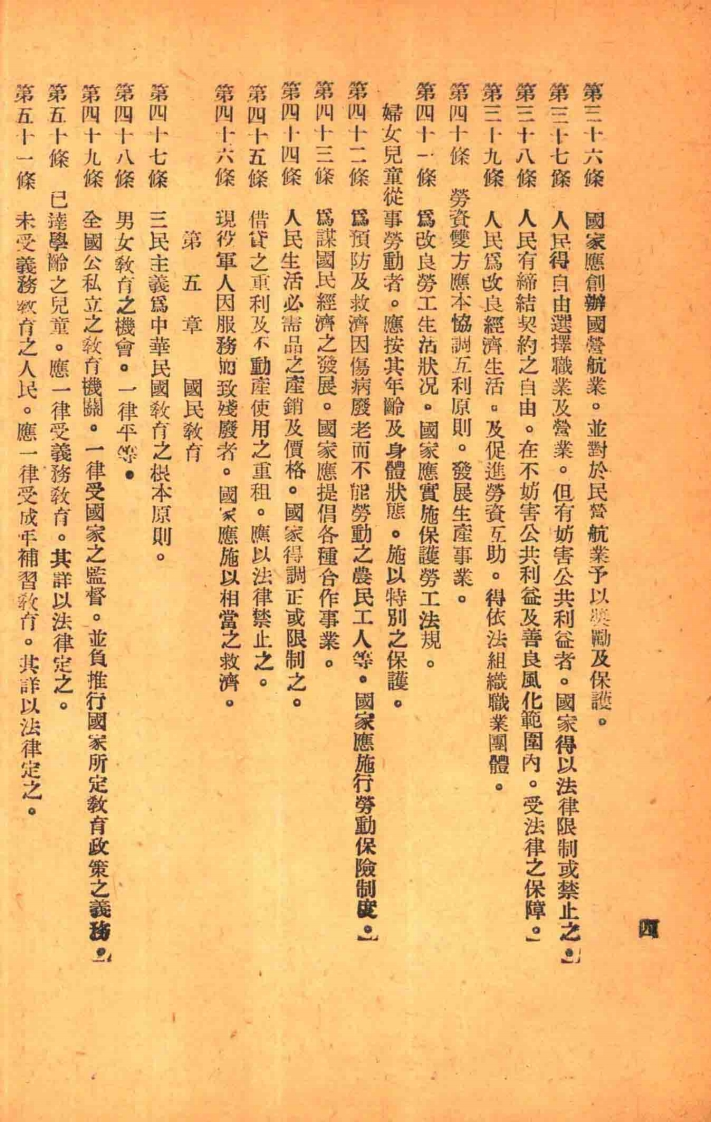 四
第三十六條　國家應創辦國營航業。並對於民營航業予以獎勵及保護。
第三十七條　人民得自由選擇職業及營業。但有妨害公共利益者。國家得以法律限制或禁止之。
第三十八條　人民有締結契約之自由。在不妨害公共利益及善良風化範圍內。受法律之保障。
第三十九條　人民爲改良經濟生活。及促進勞資互助。得依法組織職業團體。
第四十條　勞資雙方應本協調互利原則。發展生產事業。
第四十一條　爲改良勞工生活狀況。國家應實施保護勞工法規。
婦女兒童從事勞動者。應按其年齡及身體狀態。施以特別之保護。
第四十二條　爲預防及救濟因傷病廢老而不能勞動之農民工人等。國家應施行勞動保險制度。
第四十三條　爲謀國民經濟之發展。國家應提倡各種合作事業。
第四十四條　人民生活必需品之產銷及價格。國家得調正或限制之。
第四十五條　借貸之重利及不動產使用之重租。應以法律禁止之。
第四十六條　現役軍人因服務而致殘廢者。國家應施以相當之救濟。
第五章　國民教育
第四十七條　三民主義爲中華民國教育之根本原則。
第四十八條　男女教育之機會。一律平等。
第四十九條　全國公私立之教育機關。一律受國家之監督。並負推行國家所定教育政策之義務。
第五十條　已達學齡之兒童。應一律受義務教育。其詳以法律定之。
第五十一條　未受義務教育之人民。應一律受成年補習教育。其詳以法律定之。